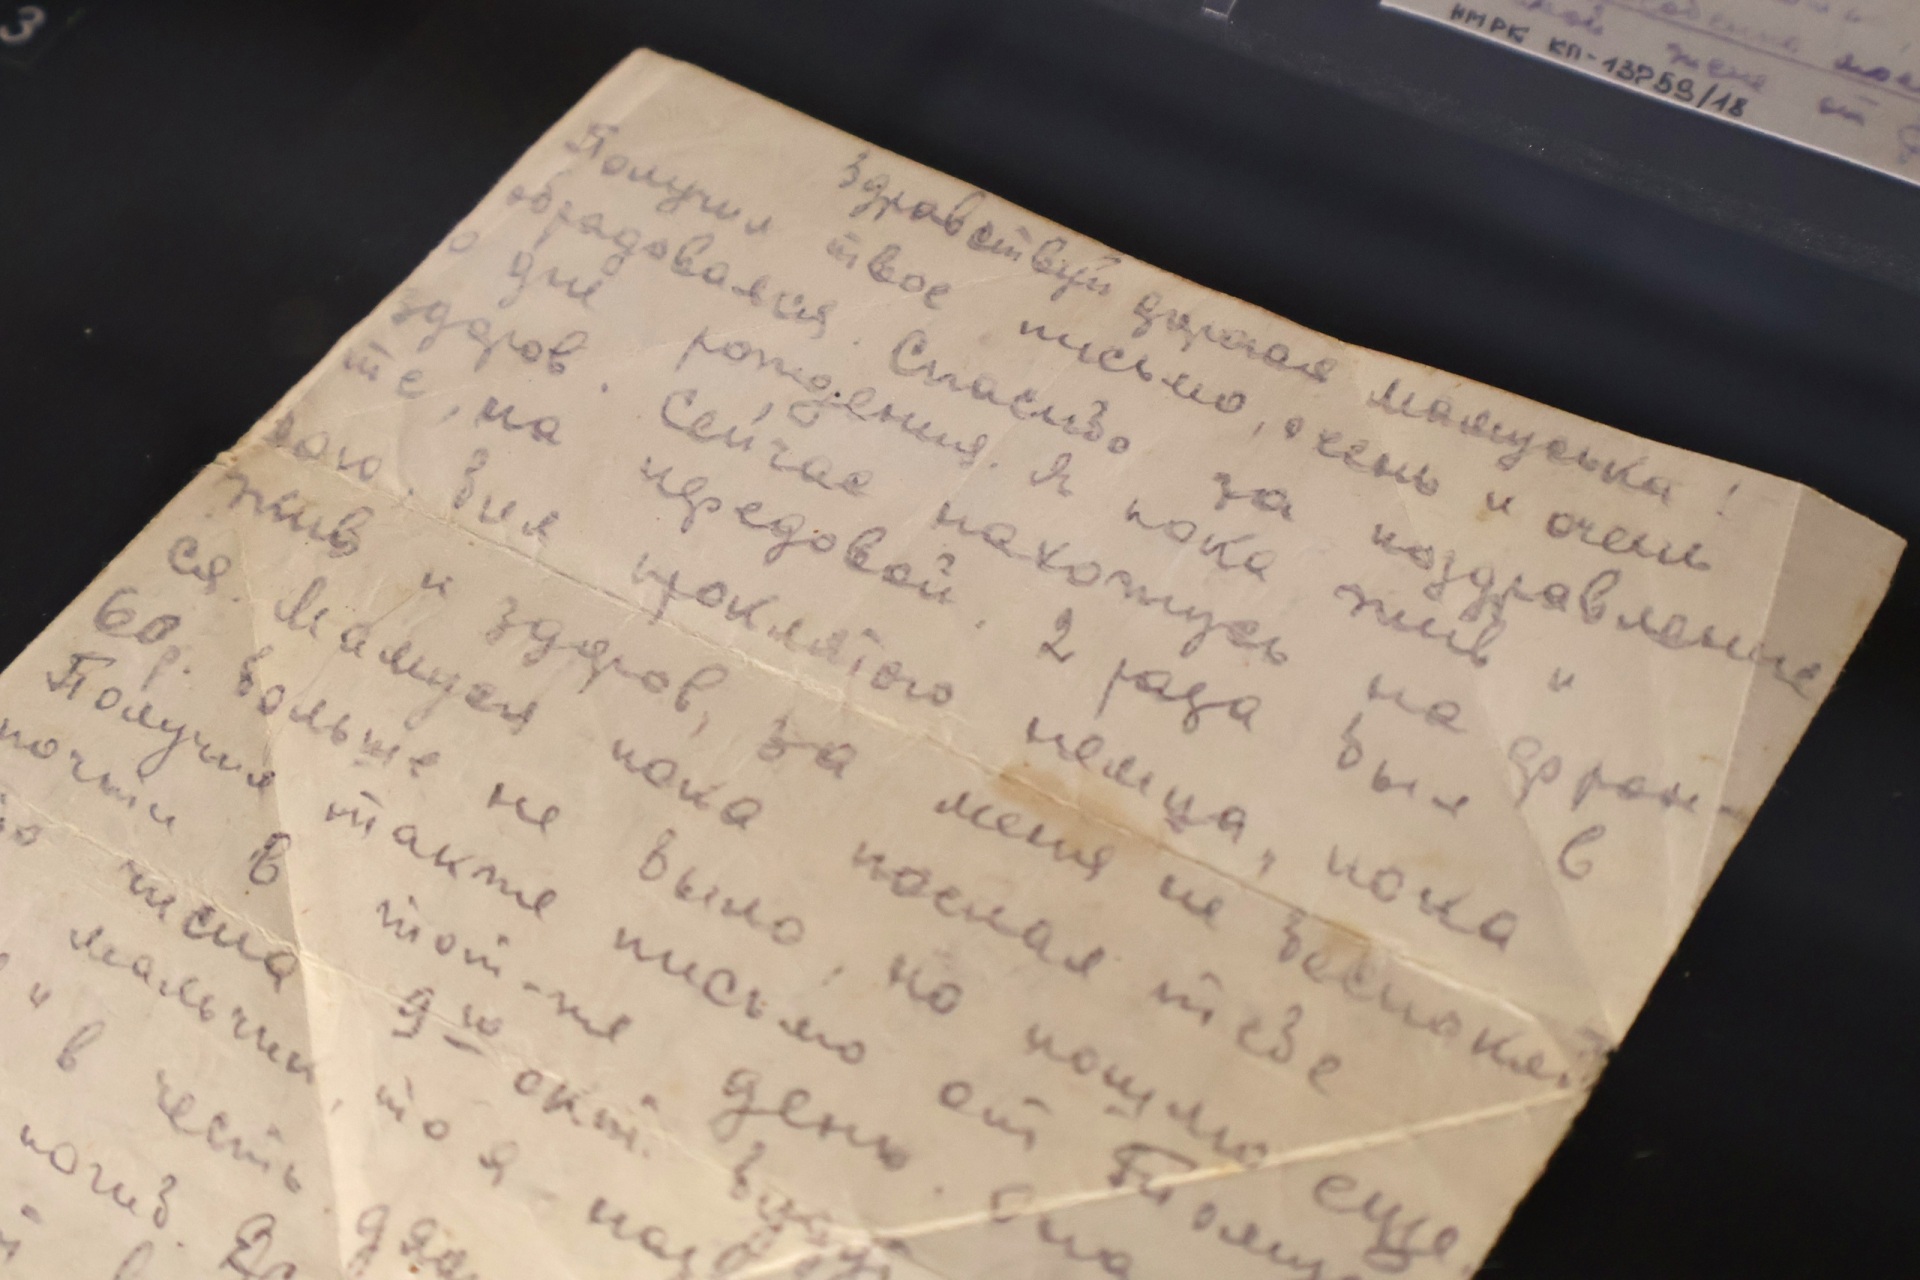 3
НМРК КП-13259/18
Здравствуй дорогая мамуська!
Получил твое письмо, очень и очень
обрадовался. Спасибо за поздравление
о дне рождения. Я пока жив и
здоров. Сейчас нахожусь на фрон-
те, на передовой. 2 раза был в
бою. Бил проклятого немца, пока
жив и здоров, за меня не беспокой-
ся. Мамуся пока послал тебе
60р. больше не было, но пошлю еще.
Получил также письмо от
почти в тот-же день. Она
числа окт.
мальчик, то я
и в честь
погиб.